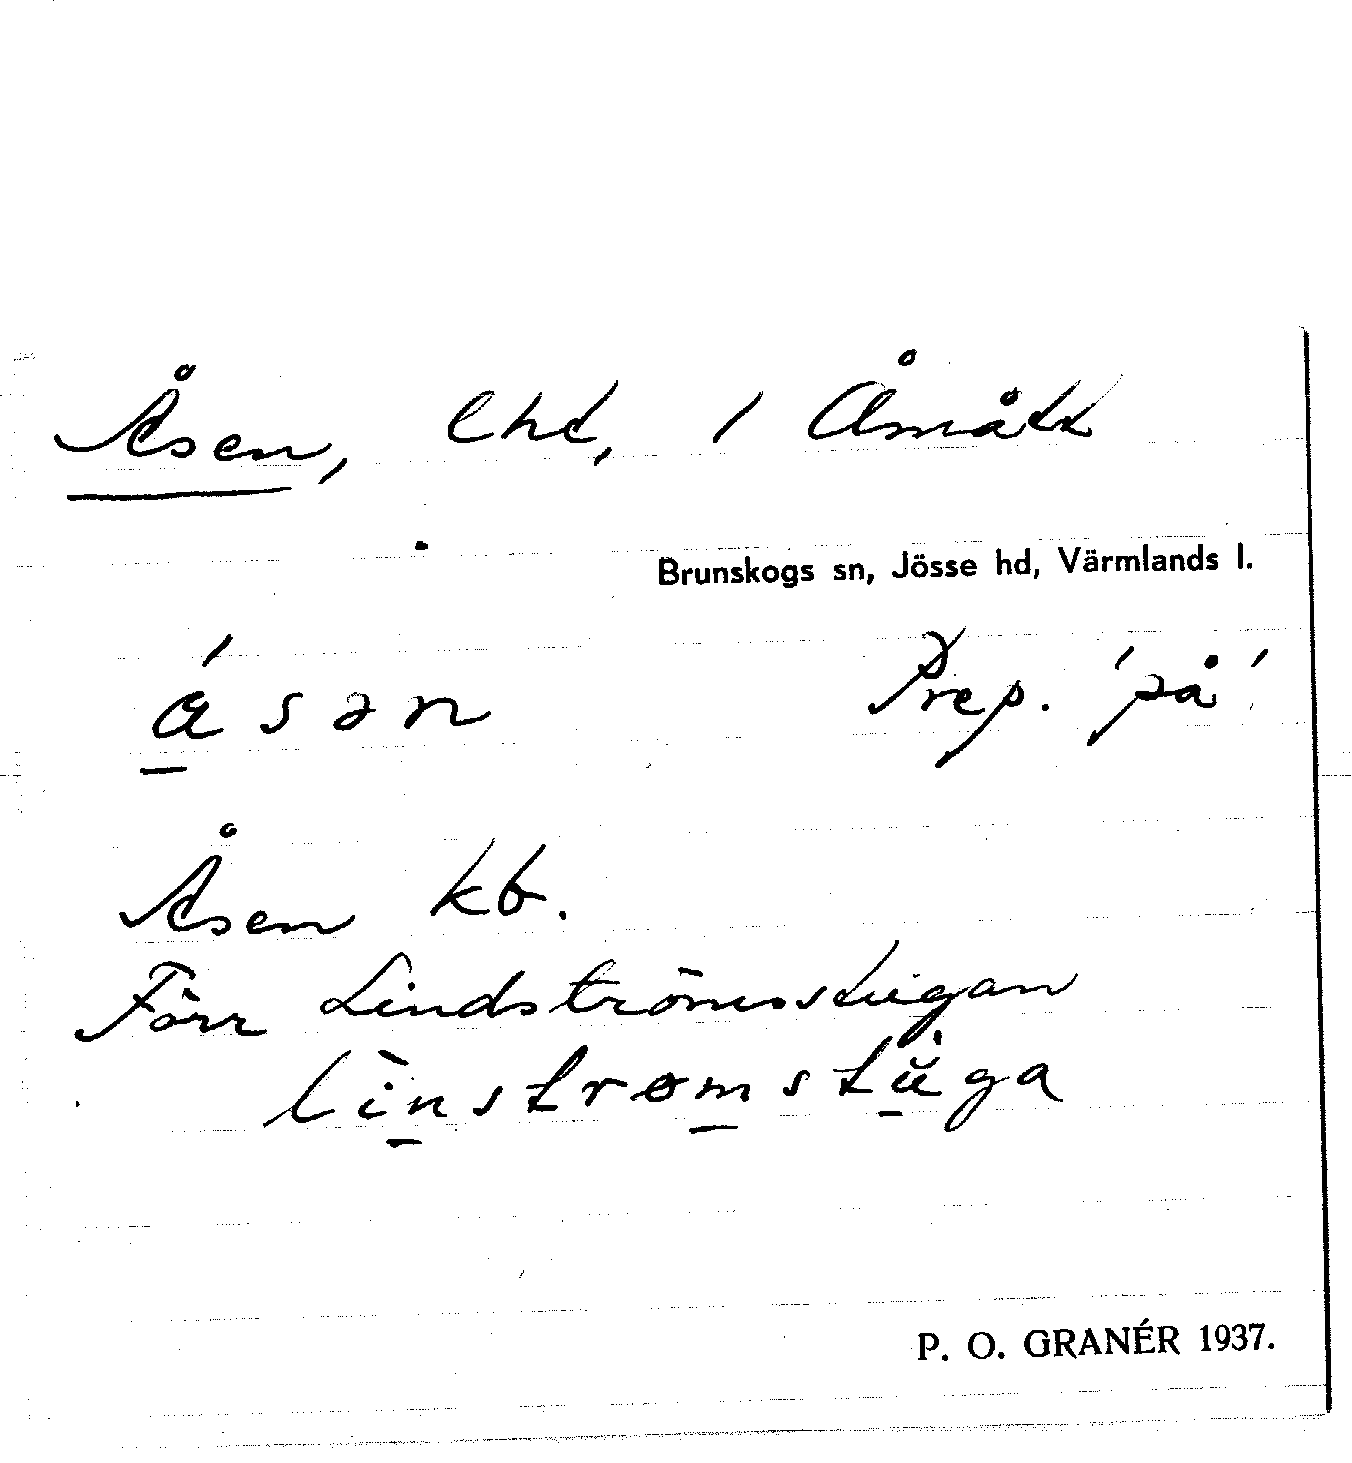 Åsen, lht, i Åmått
Brunskogs sn, Jösse hd, Värmlands l.
ǻsən Prep. 'på'
Åsen kb.
Förr Lindströmsstugan
lìnstromstu̇ga
P. O. GRANÉR 1937.